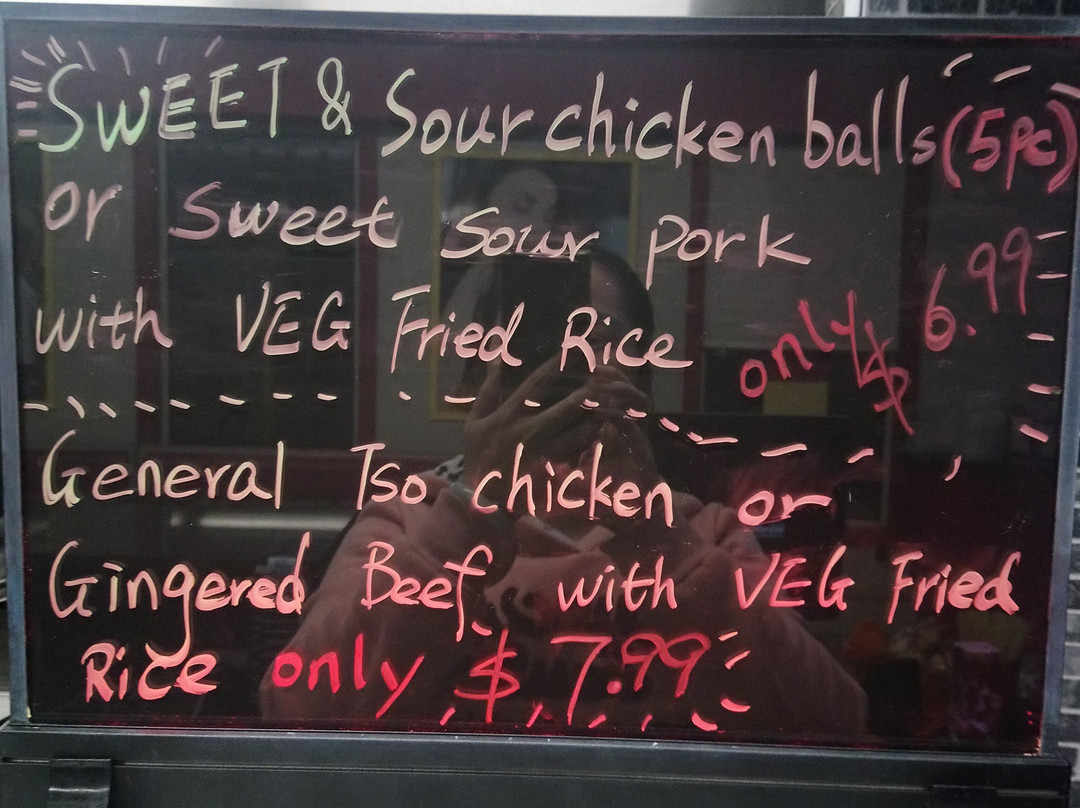 SWEET & Sour chicken balls (5pc)
or Sweet Sour pork
with VEG Fried Rice only $ 6.99
General Tso chicken or
Gingered Beef with VEG Fried
Rice only $ 7.99